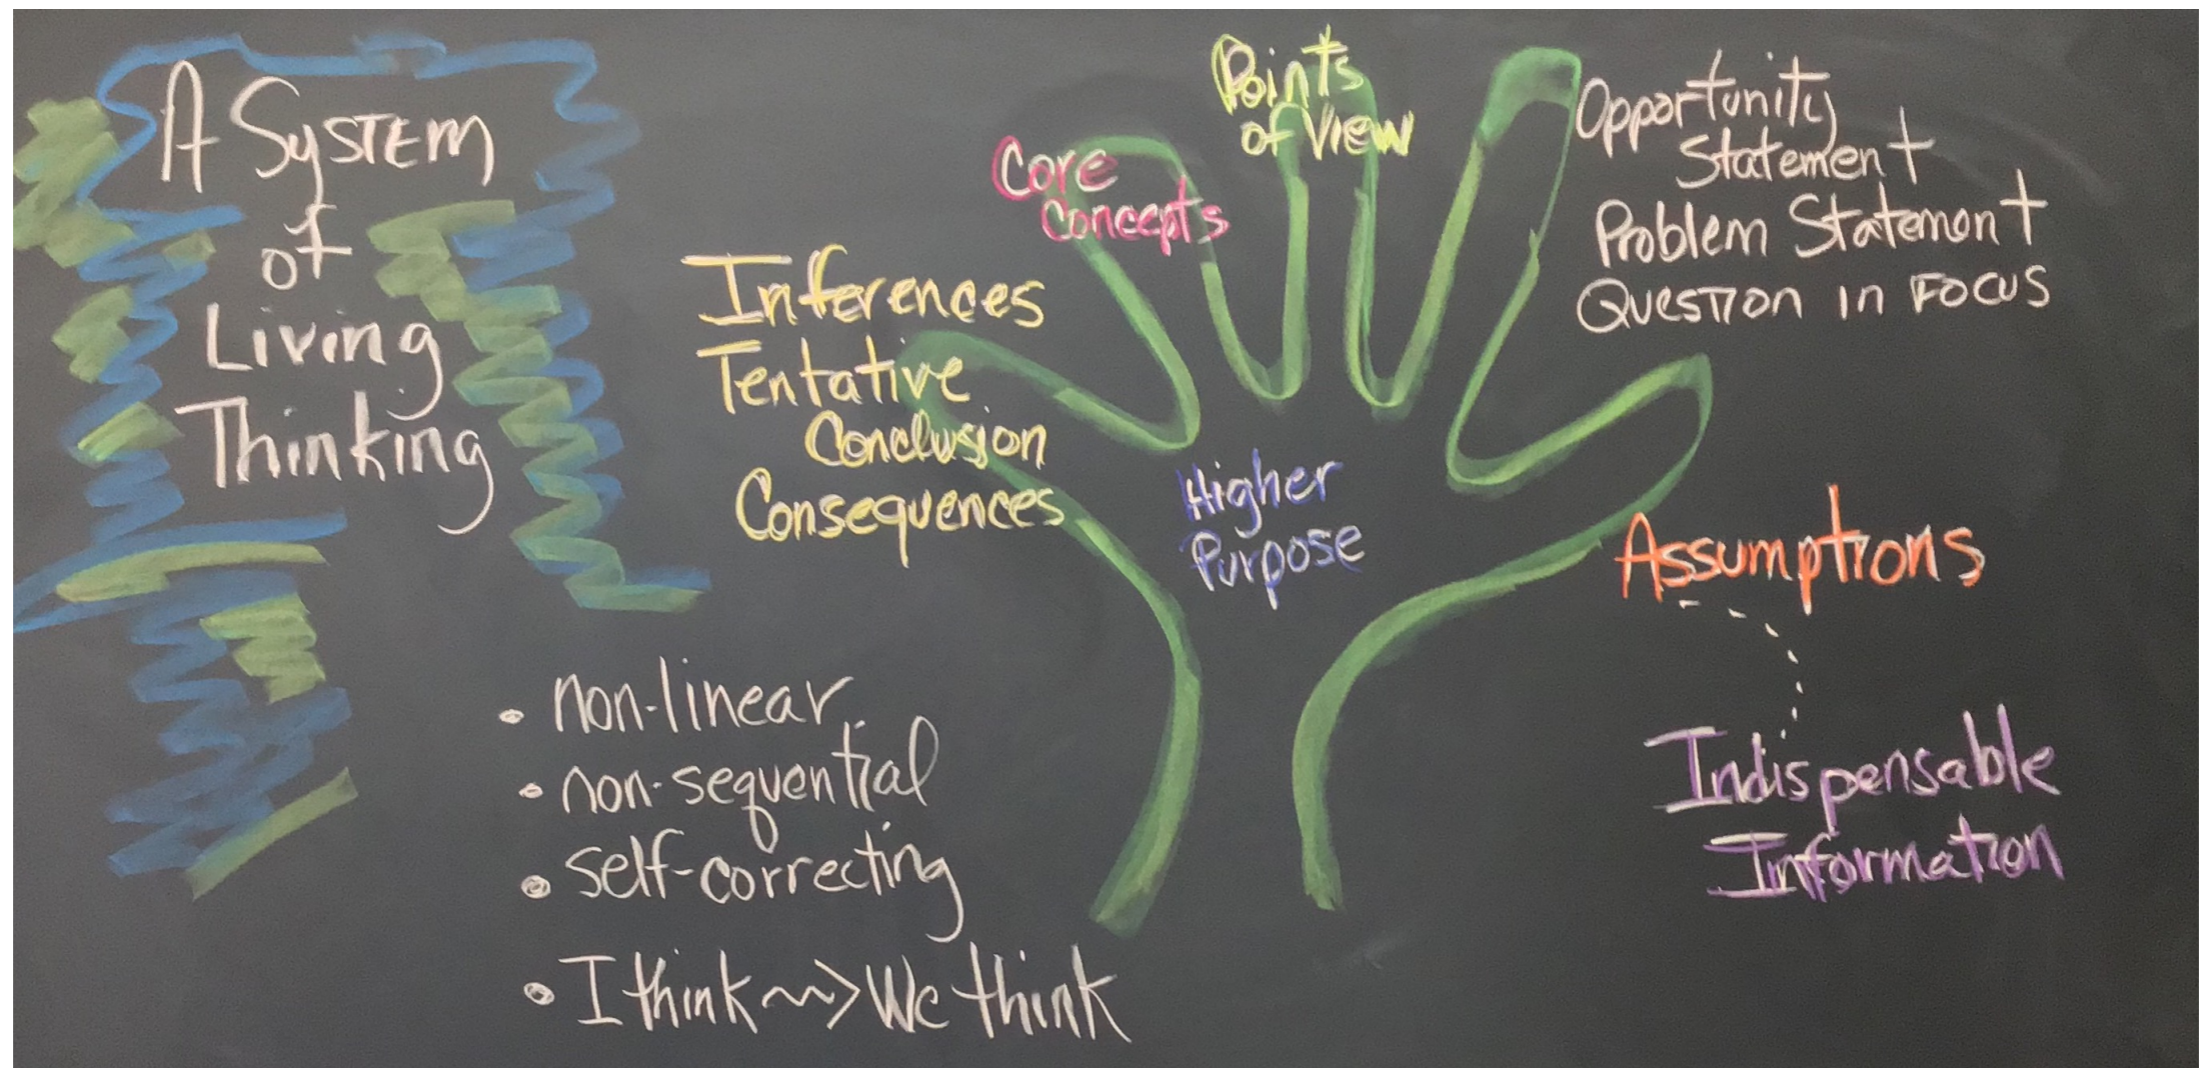 A System
of
Living
Thinking
Inferences
Tentative
Conclusion
Consequences
Core
Concepts
Points
of View
Opportunity
Statement
Problem Statement
Question in Focus
Higher
Purpose
Assumptions
Indispensable
Information
• non-linear
• non-sequential
• self-correcting
• I think ~~> We think